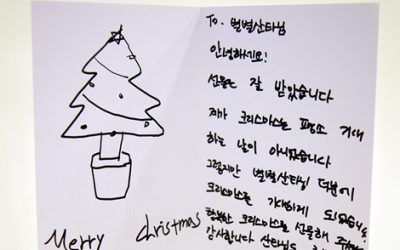 To. 별별산타님
안녕하세요!
선물은 잘 받았습니다
제가 크리스마스는 평소 기대
하는 날이 아니었습니다
그렇지만 별별산타님 덕분에
크리스마스를 기대하게 되었습니다
행복한 크리스마스를 선물해 주셔서
감사합니다 산타님도
Merry christmas